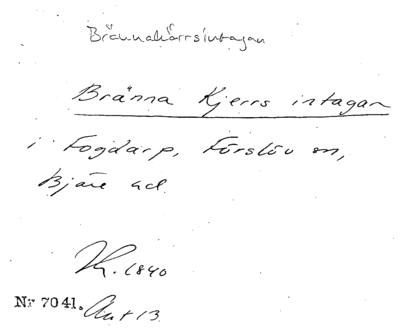 Brännakärrsintagan
Bränna Kjerrs intagan
i Fogdarp, Förslöv sn,
Bjäre hd
1840
Nr 7041. Akt 13.